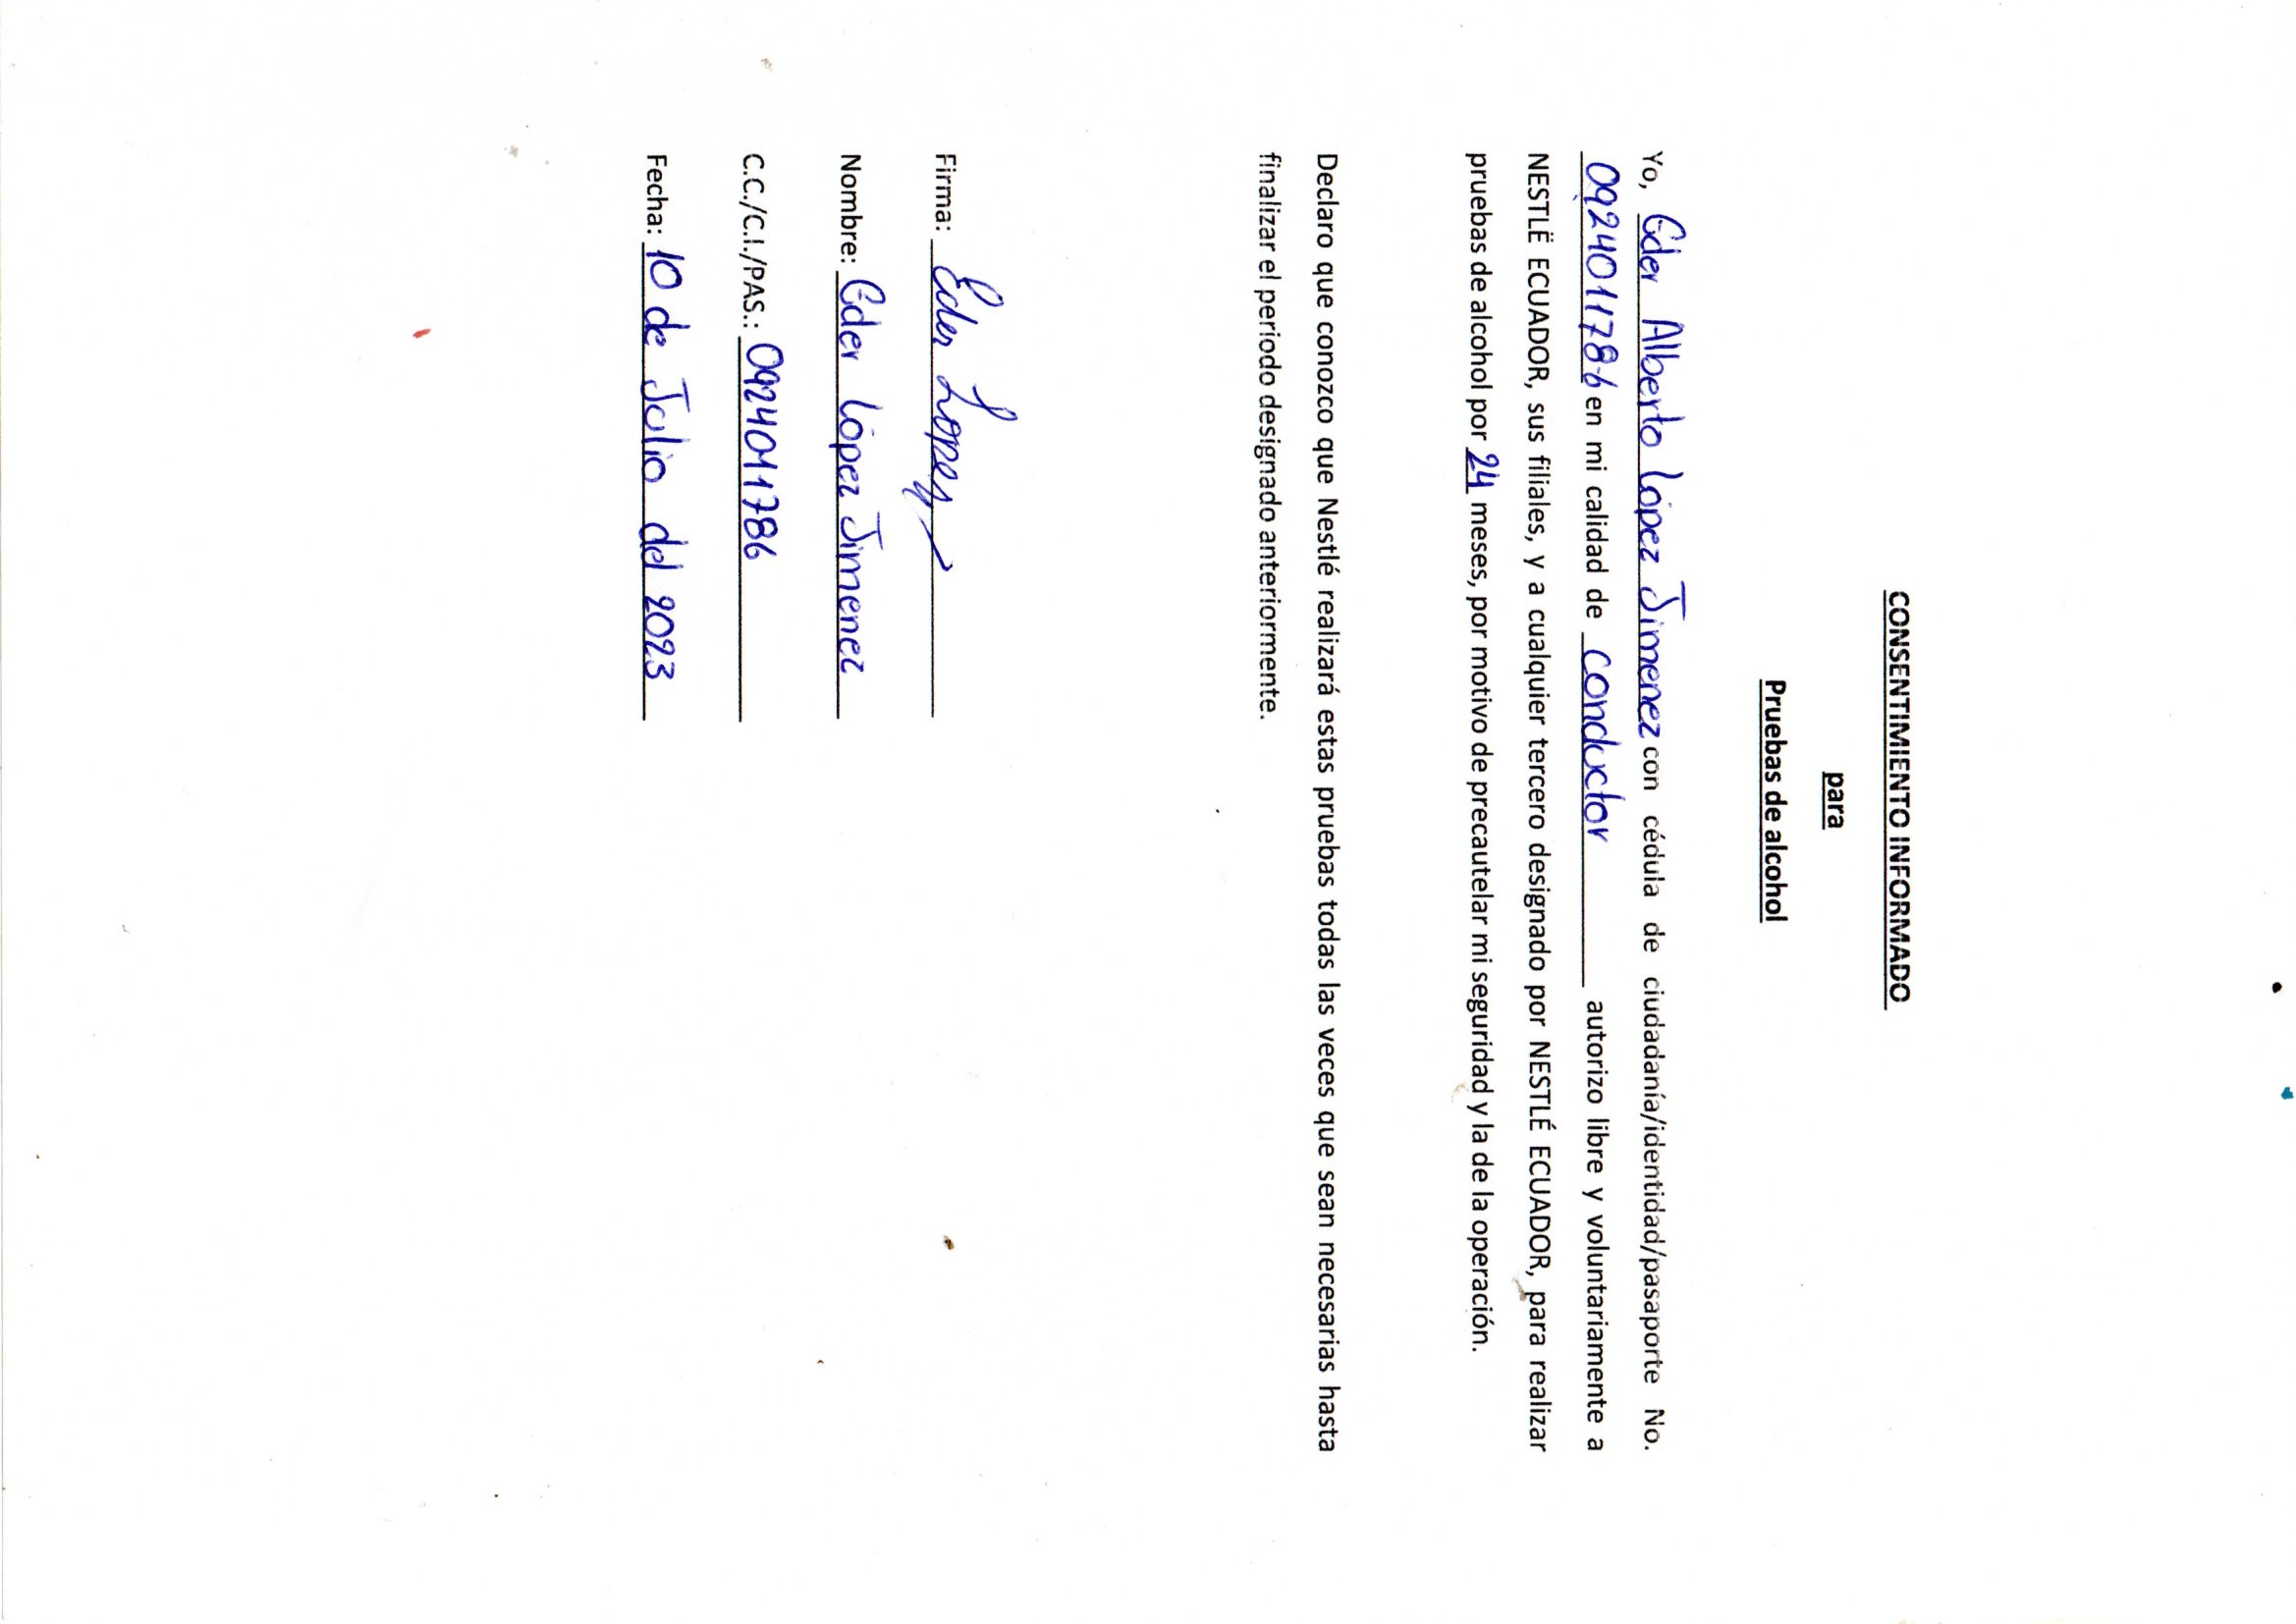 CONSENTIMIENTO INFORMADO
para
Pruebas de alcohol
Yo, Eder Alberto López Jimenez con cédula de ciudadanía/identidad/pasaporte No.
092401178-6 en mi calidad de conductor autorizo libre y voluntariamente a
NESTLË ECUADOR, sus filiales, y a cualquier tercero designado por NESTLÉ ECUADOR, para realizar
pruebas de alcohol por 24 meses, por motivo de precautelar mi seguridad y la de la operación.
Declaro que conozco que Nestlé realizará estas pruebas todas las veces que sean necesarias hasta
finalizar el periodo designado anteriormente.
Firma: Eder Lopez
Nombre: Eder López Jimenez
C.C./C.I./PAS.: 0924011786
Fecha: 10 de Julio del 2023